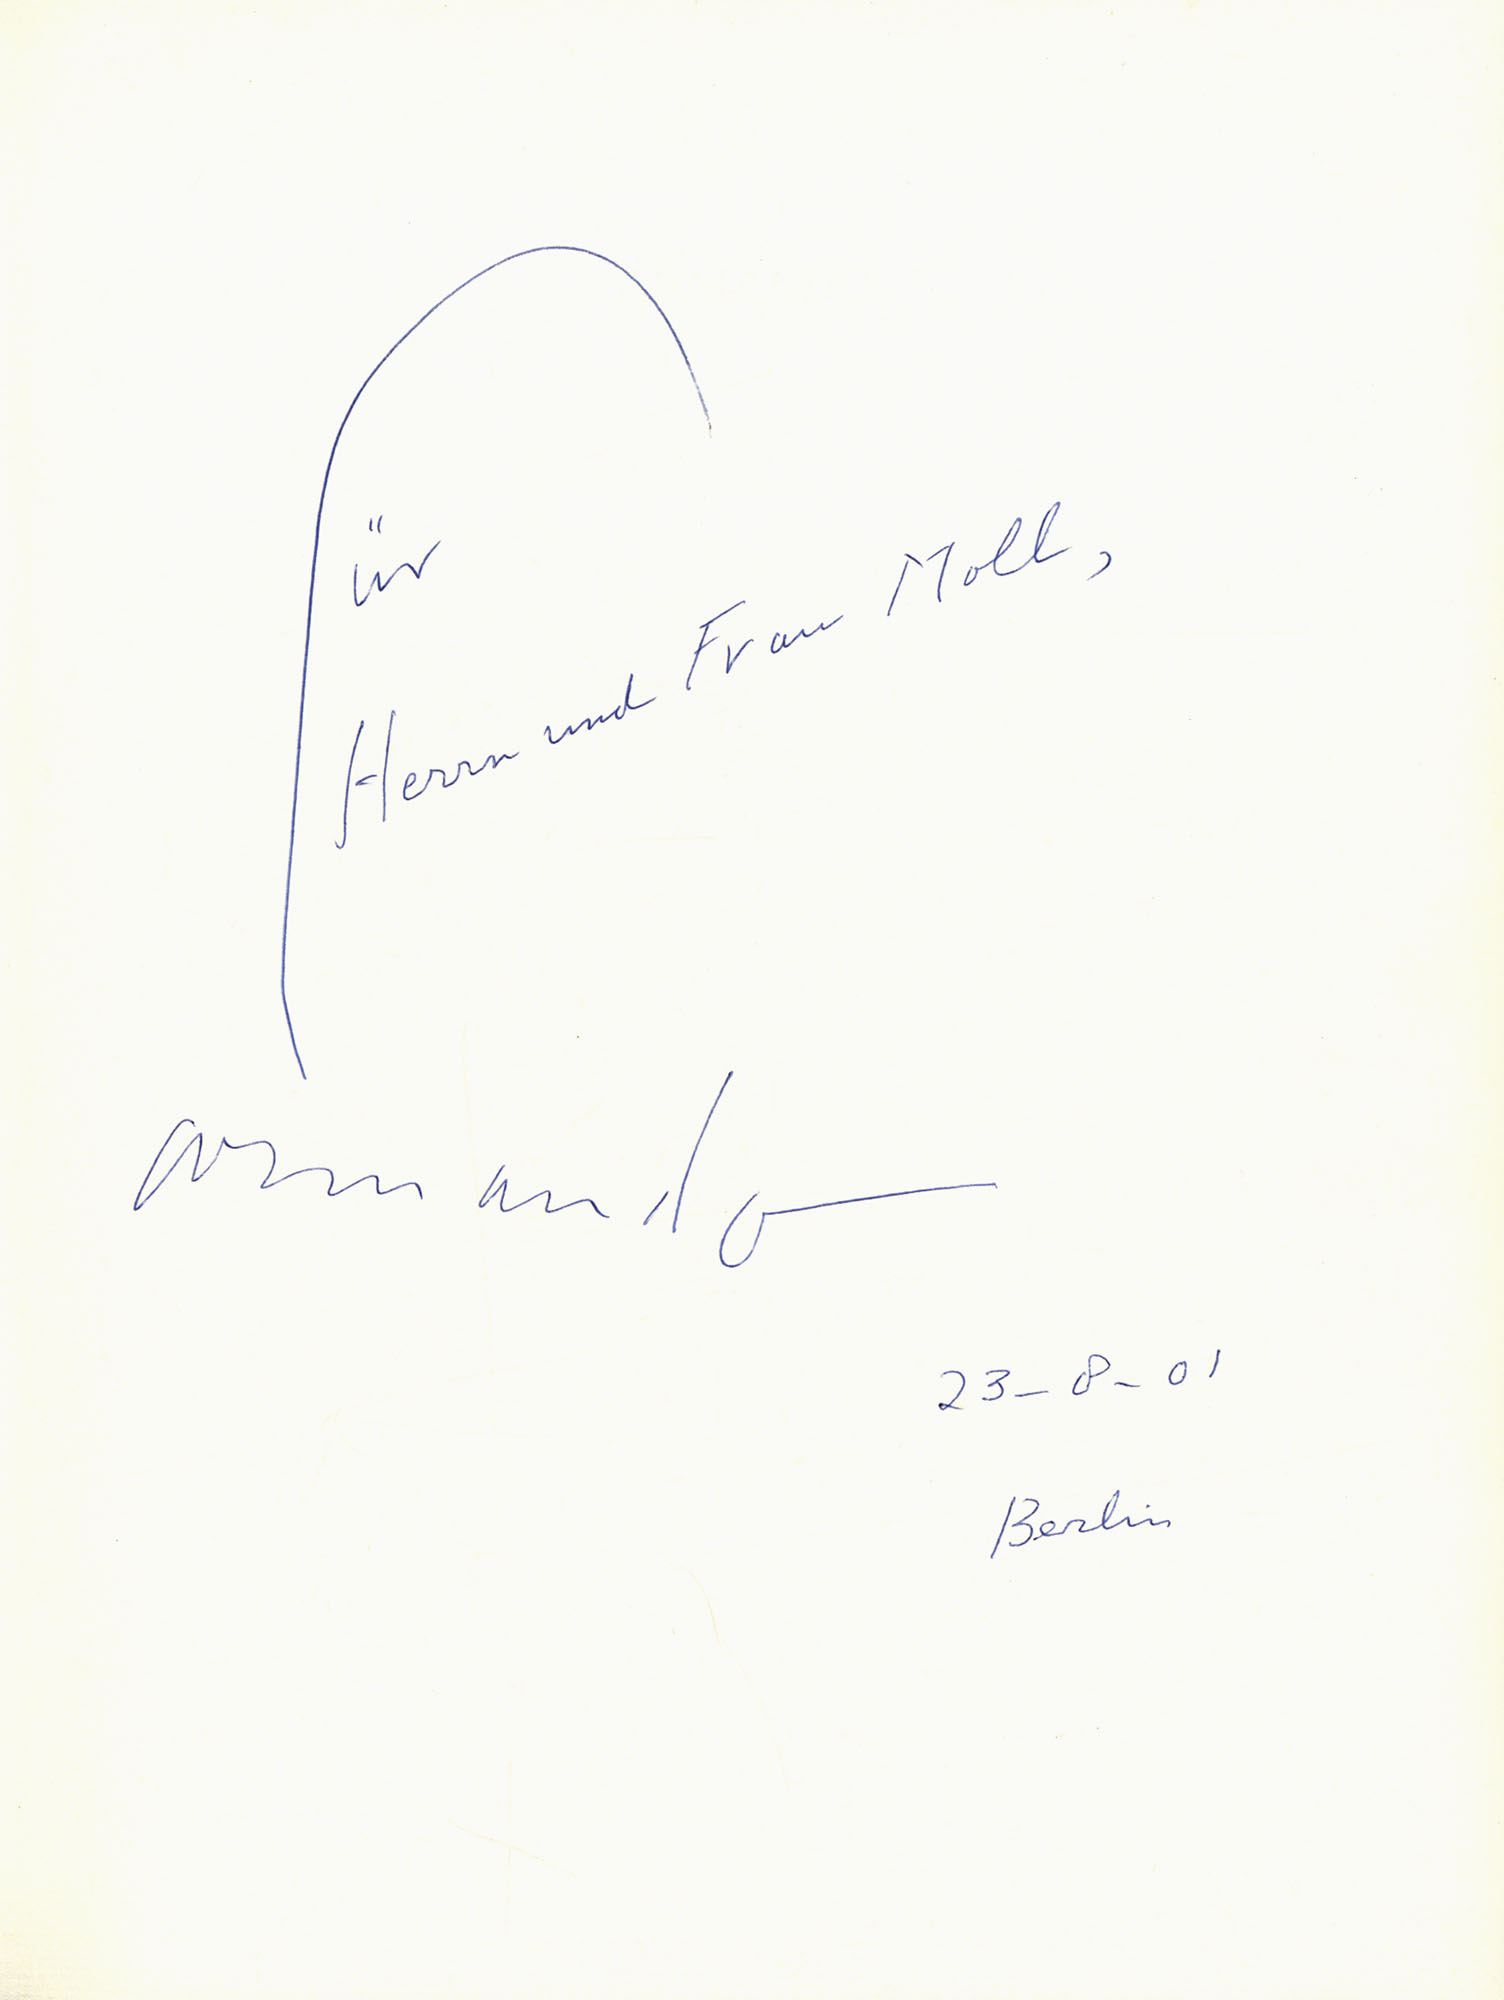 für
Herrn und Frau Moll,
armando
23-8-01
Berlin